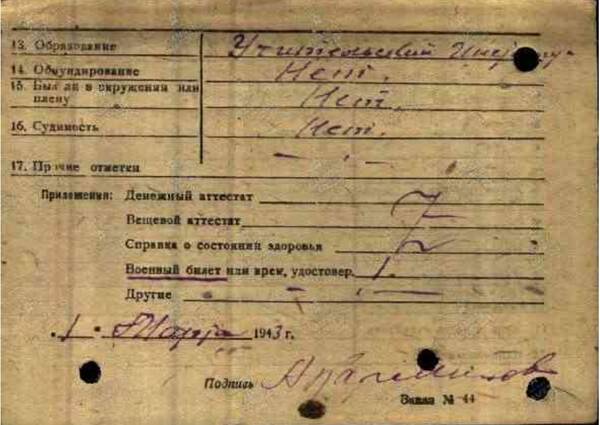 13. Образование Учительский Инс
14. Обмундирование Нет.
15. Был ли в окружении или
плену Нет.
16. Судимость Нет.
17. Прочие отметки — , —
Приложения: Денежный аттестат
Вещевой аттестат
Справка о состоянии здоровья
Военный билет или врем. удостовер. 1.
Другие — , —
1 • Марта 1943 г.
Подпись
Заказ № 44